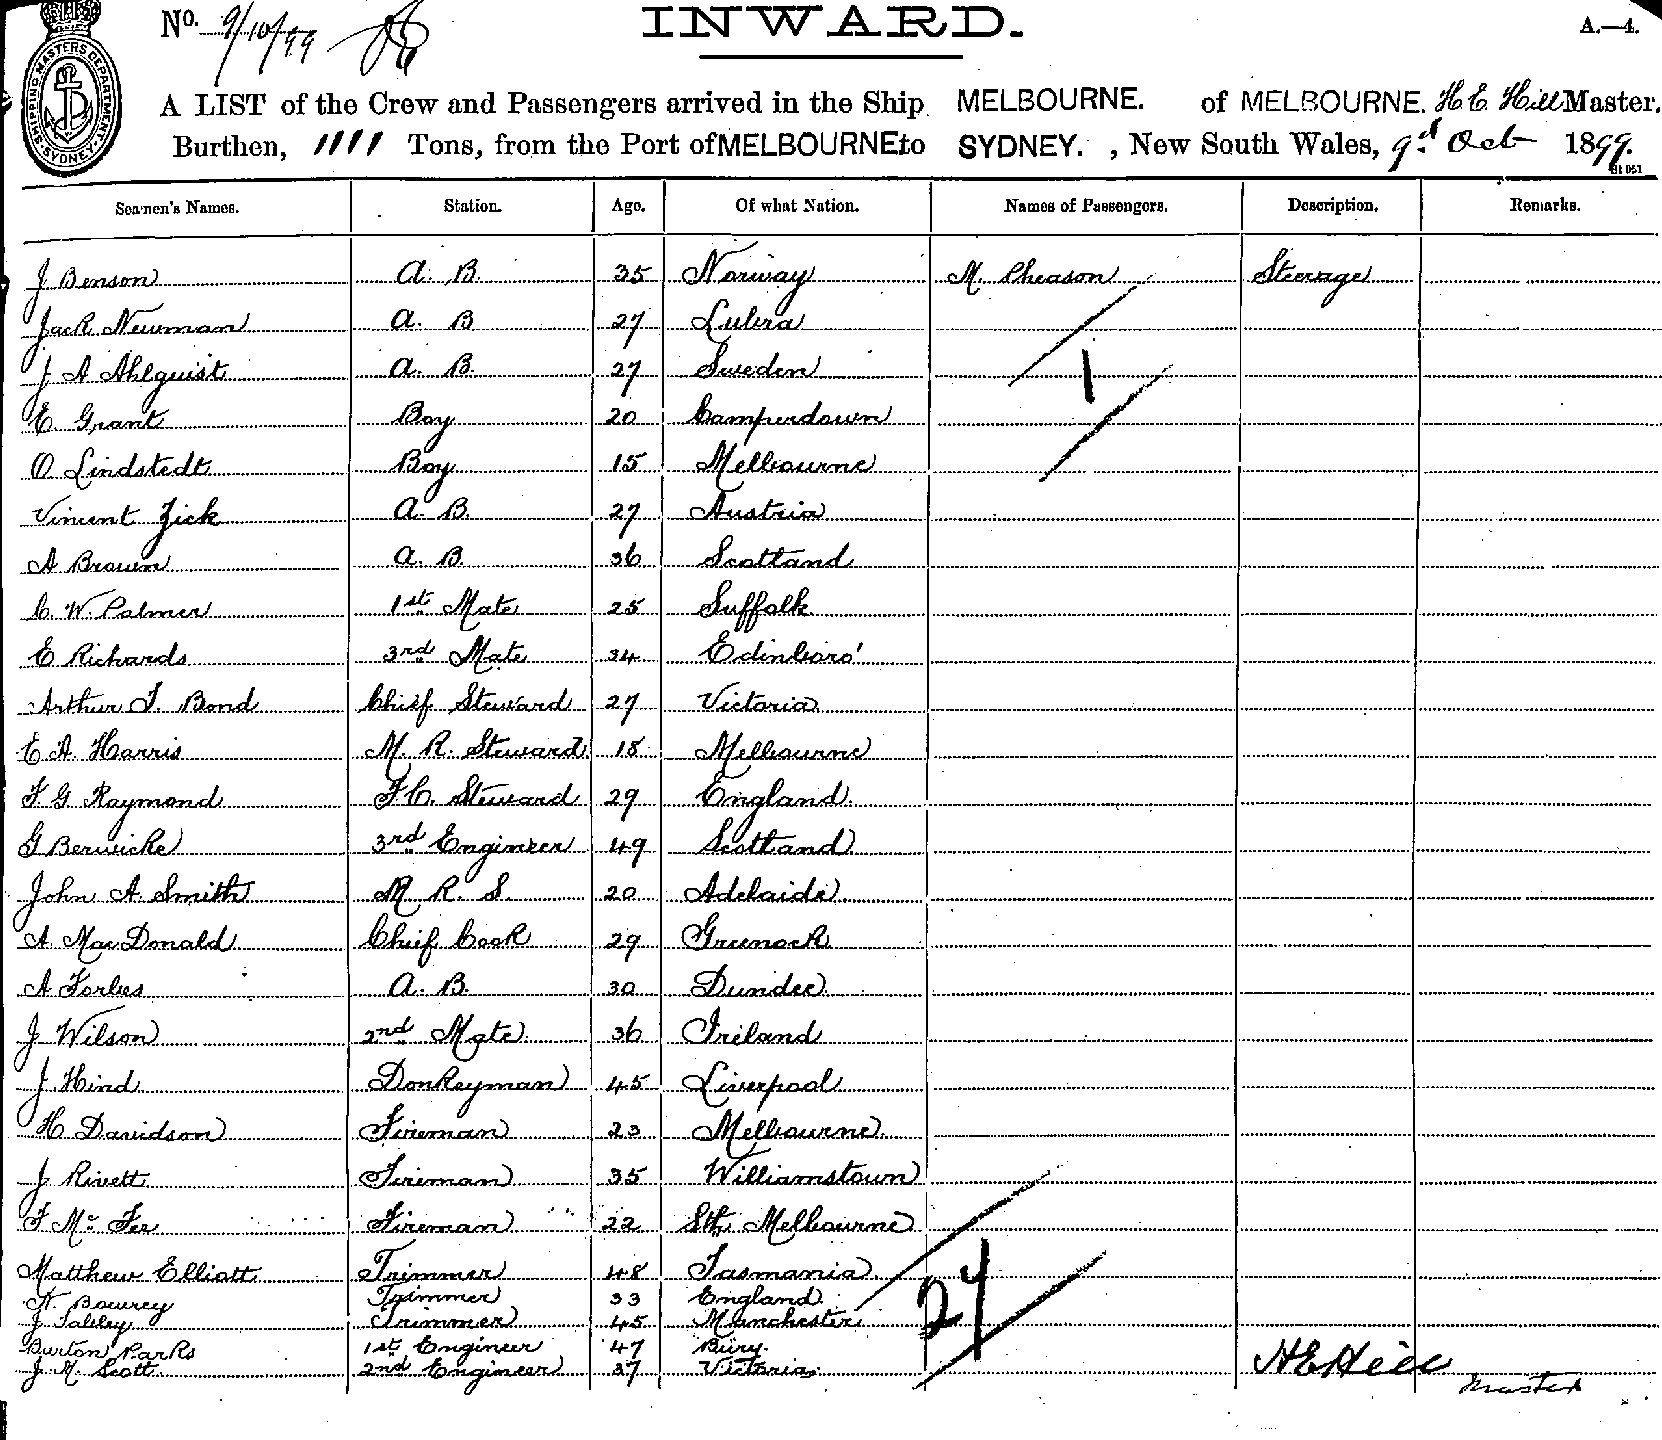 No. 9/10/99
INWARD.
A.—4.
SHIPPING MASTERS DEPARTMENT. SYDNEY.
A LIST of the Crew and Passengers arrived in the Ship MELBOURNE. of MELBOURNE. H E Hill Master.
Burthen, 1111 Tons, from the Port of MELBOURNE to SYDNEY. , New South Wales, 9th Oct 1899.
Seamen's Names. Station. Age. Of what Nation. Names of Passengers. Description. Remarks.
J Benson A. B. 35 Norway M. Pheason Steerage
Jack Newman A. B 27 Lubra
J A Ahlquist A. B. 27 Sweden
1
E. Grant Boy 20 Camperdown
O Lindstedt Boy 15 Melbourne
Vincent Zick A. B. 27 Austria
A Brown A. B. 36 Scotland
C. W. Palmer 1st Mate 25 Suffolk
E Richards 3rd Mate 34 Edinboro'
Arthur F. Bond Chief Steward 27 Victoria
E A Harris M. R. Steward 18 Melbourne
F G Raymond F.C. Steward 29 England
G Berwicke 3rd Engineer 49 Scotland
John A. Smith M R. S. 20 Adelaide
A MacDonald Chief Cook 29 Greenock
A Forbes A. B. 30 Dundee
J Wilson 2nd Mate 36 Ireland
J Hind Donkeyman 45 Liverpool
H Davidson Fireman 23 Melbourne
J Rivett Fireman 35 Williamstown
F Mc Fee Fireman 22 Sth Melbourne
Matthew Elliott Trimmer 48 Tasmania
Bowrey Trimmer 33 England
24
J Trimmer 45 Manchester
Burton Parks 1st Engineer 47 Bury.
J. M. Scott 2nd Engineer 37 Victoria
H E Hill
Master